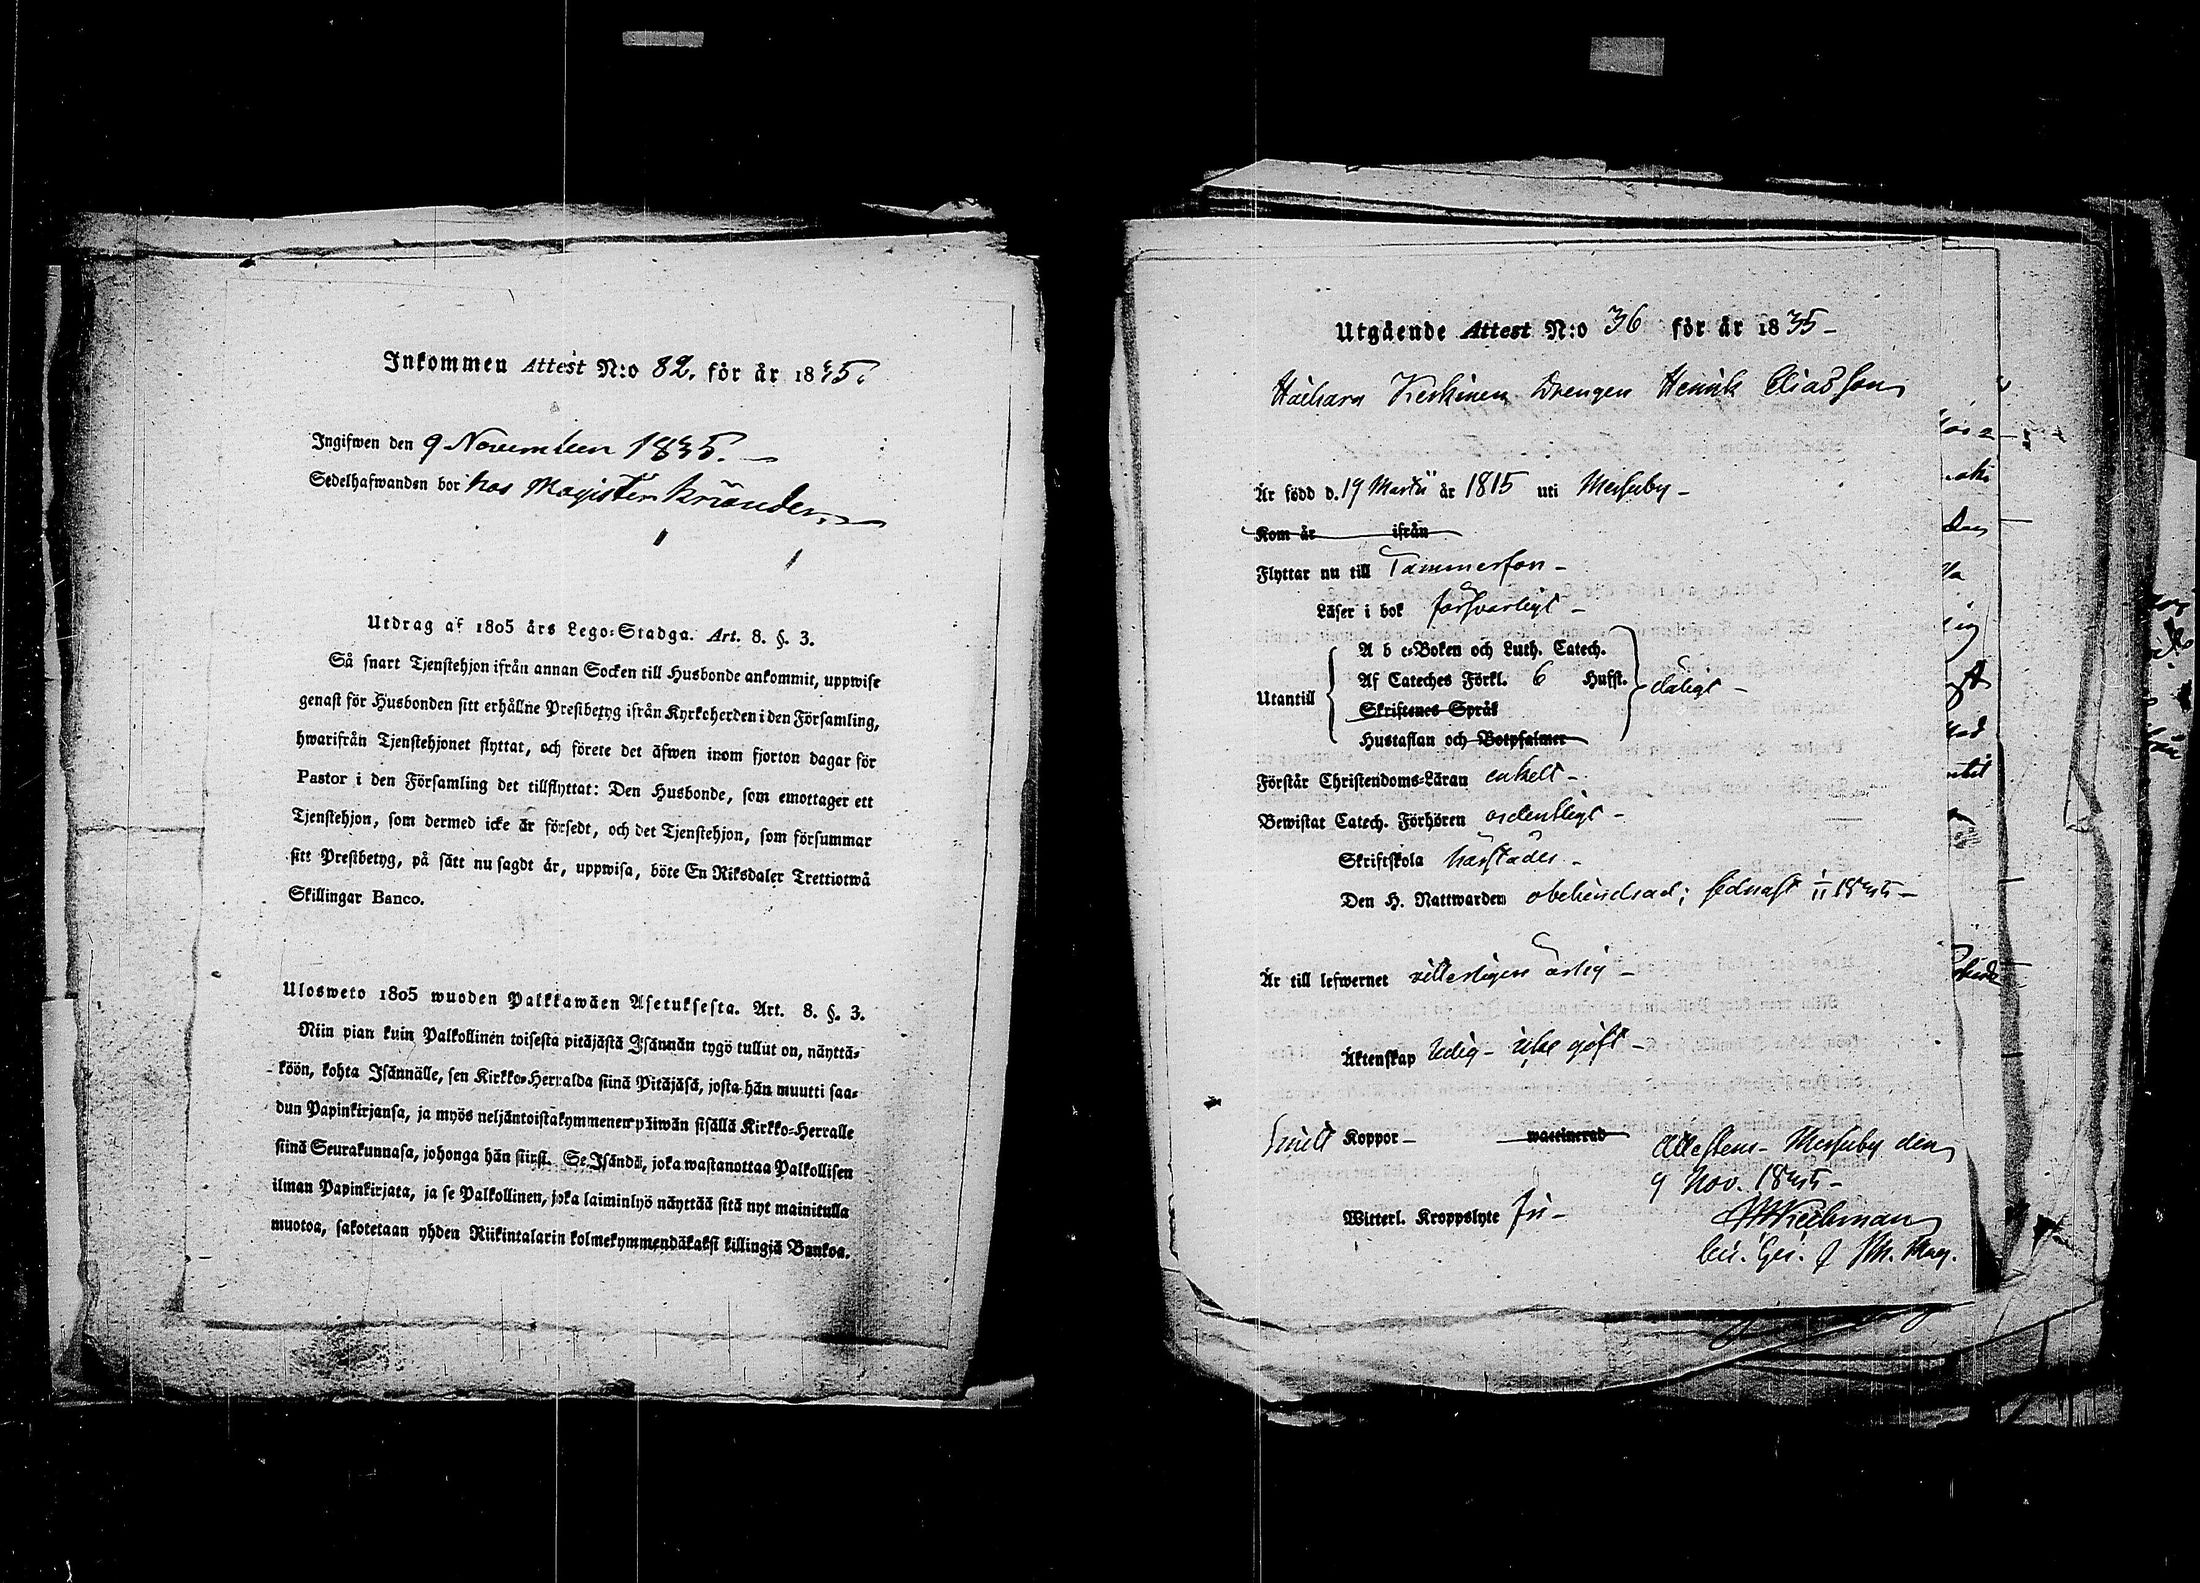 Inkommen Attest N:o 82. för år 1835.
Ingifwen den 9 November 1835. —
Sedelhafwanden bor hos Magister
Utdrag af 1805 års Lego-Stadga. Art. 8. §. 3.
Så snart Tjenstehjon ifrån annan Socken till Husbonde ankommit, uppwise
genast för Husbonden sitt erhållne Prestbetyg ifrån Kyrkoherden i den Församling,
hwarifrån Tjenstehjonet flyttat, och förete det äfwen inom fjorton dagar för
Pastor i den Församling det tillflyttat: Den Husbonde, som emottager ett
Tjenstehjon, som dermed icke är försedt, och det Tjenstehjon, som försummar
sitt Prestbetyg, på sätt nu sagdt är, uppwisa, böte En Riksdaler Trettiotwå
Skillingar Banco.
Ulosweto 1805 wuoden Palkkawäen Asetuksesta. Art. 8. §. 3.
Niin pian kuin Palkollinen toisesta pitäjästä Isännän tygö tullut on, näyttä-
köön, kohta Isännälle, sen Kirkko-Herralda siinä Pitäjäsä, josta hän muutti saa-
dun Papinkirjansa, ja myös neljäntoistakymmenen päiwän sisällä Kirkko-Herralle
siinä Seurakunnasa, johonga hän siirsi. Se Isändä, joka wastanottaa Palkollisen
ilman Papinkirjata, ja se Palkollinen, joka laiminlyö näyttää sitä nyt mainitulla
muotoa, sakotetaan yhden Riikintalarin kolmekymmendäkaksi killingiä Bankoa.
Utgående Attest N:o 36 för år 1835 –
Keskinen Drengen Henrik Eliasson
Är född d. 19 Martii år 1815 uti Messuby –
Kom år ifrån
Flyttar nu till Tammerfors –
Läser i bok försvarligt –
A b c-Boken och Luth. Catech.
Af Cateches Förkl. 6 Hufst.
Utantill dåligt –
Skriftenes Språk
Hustaflan och Botpsalmer
Förstår Christendoms-Läran enkelt –
Bewistat Catech. Förhören ordentligt –
Skriftskola härstädes –
Den H. Nattwarden obehindrad; sednast 1/11 1835 –
Är till lefwernet ärlig –
Äktenskap ledig – icke gift –
Koppor – waccinerad
Attesteras Messuby den
9 Nov. 1835 –
Witterl. Kroppslyte